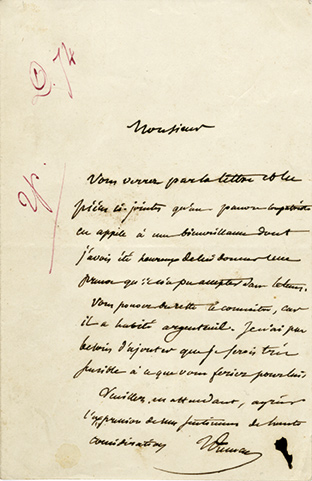 Monsieur
Vous verrez par la lettre et les
pièces ci-jointes qu'un pauvre
en appelle à une bienveillance dont
j'avais été heureux de lui donner une
preuve qu'il n'a pu accepter dans le tems.
Vous pouvez du reste le connaître, car
il a habité argenteuil. Je n'ai pas
besoin d'ajouter que je serais très
sensible à ce que vous feriez pour lui.
Veuillez, en attendant, agréer
l'expression de mes sentimens de haute
considération